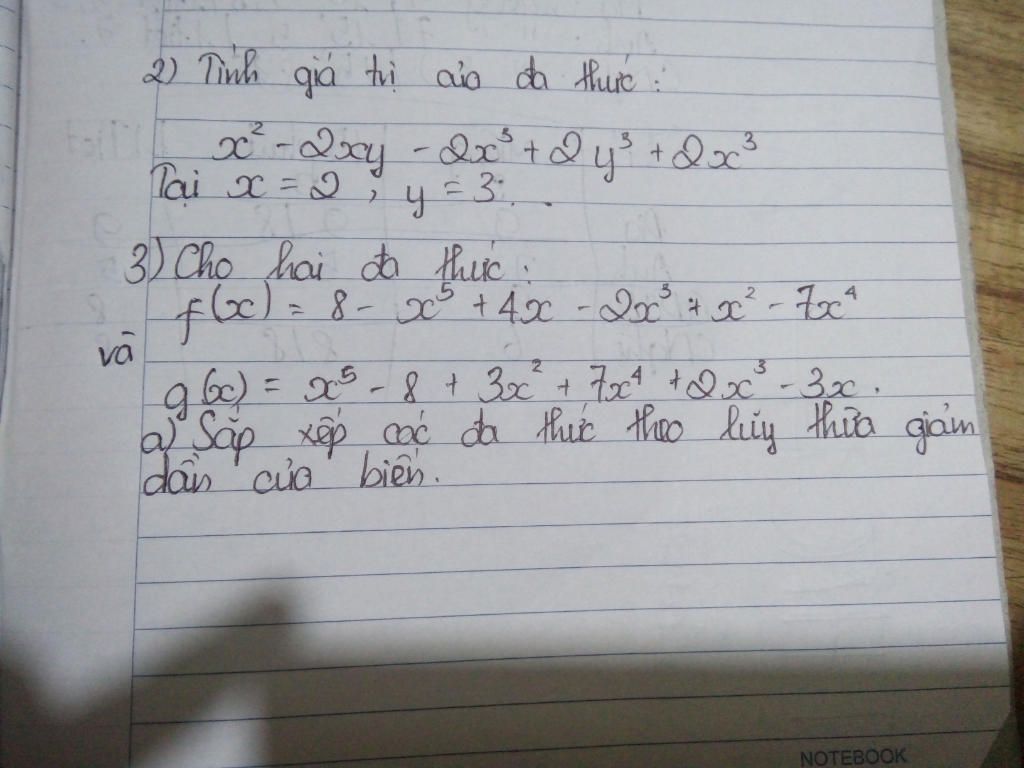 2) Tính giá trị của đa thức:
x² - 2xy - 2x³ + 2y³ + 2x³
Tại x = 2, y = 3.
3) Cho hai đa thức:
f(x) = 8 - x⁵ + 4x - 2x³ + x² - 7x⁴
và
g(x) = x⁵ - 8 + 3x² + 7x⁴ + 2x³ - 3x.
a) Sắp xếp các đa thức theo lũy thừa giảm
dần của biến.
NOTEBOOK